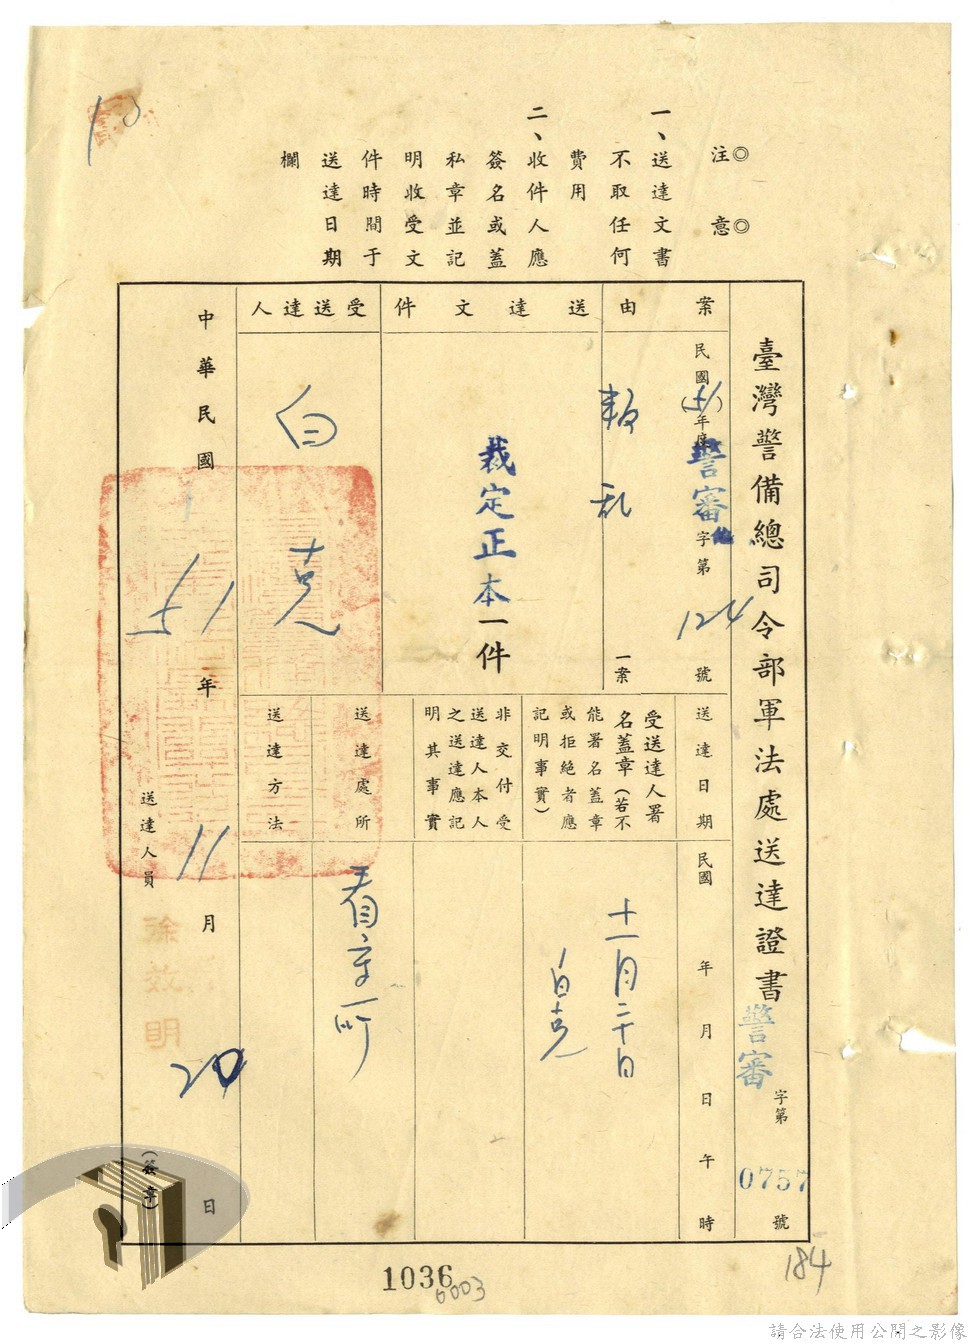 ◎注　◎意
一、送達文書
不取任何
費用
二、收件人應
簽名或蓋
私章並記
明收受文
件時間于
送達日期
欄
臺灣警備總司令部軍法處送達證書
警審
字第
0757
號
案由
民國(51)年度
警審
字第
124
號
叛乱
一案
送達文件
裁定正本一件
受送達人
白克
送達日期
民國　年　月　日　午　時
受送達人署
名蓋章(若不
能署名蓋章
或拒絕者應
記明事實)
十一月二十日
白克
非交付受
送達人本人
之送達應記
明其事實
送達處所
看守所
送達方法
中華民國
51
年
11
月
20
日
送達人員
徐效明
(簽章)
1036
0003
184
10
請合法使用公開之影像